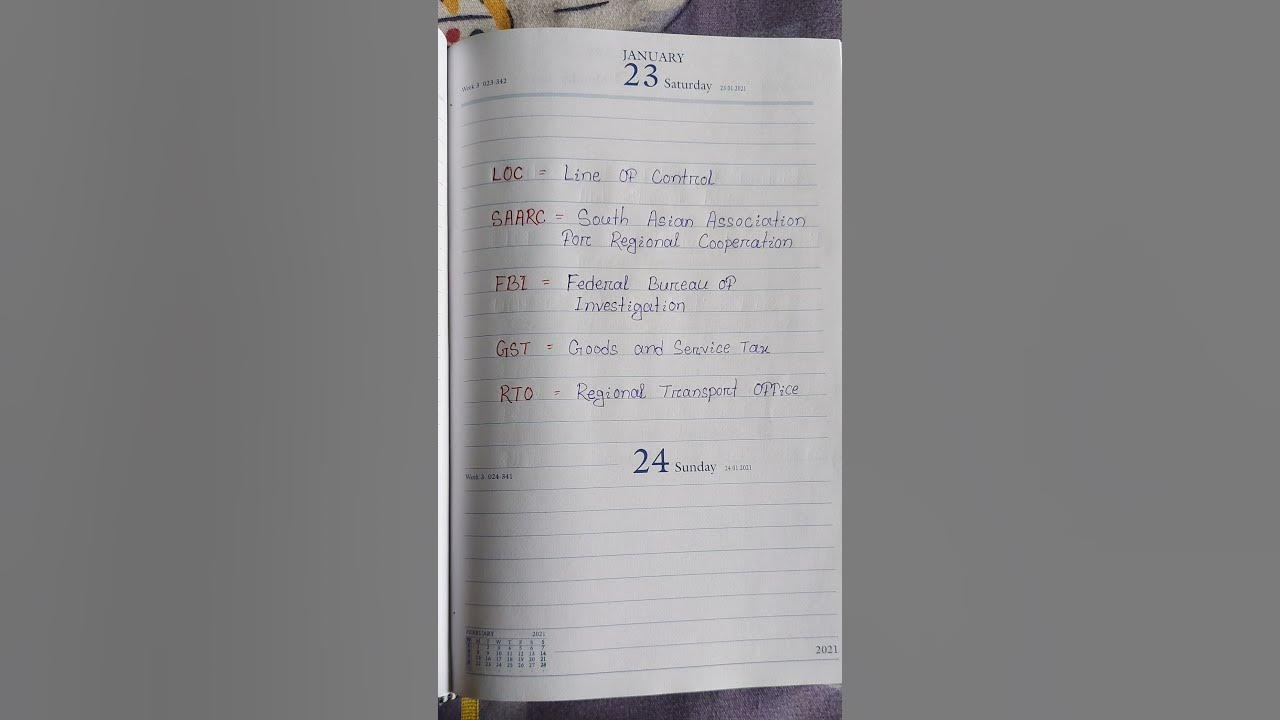 JANUARY
23 Saturday 23.01.2021
Week 3 023-342
LOC = Line of Control
SAARC = South Asian Association
For Regional Cooperation
FBI = Federal Bureau of
Investigation
GST = Goods and Service Tax
RTO = Regional Transport Office
24 Sunday 24.01.2021
Week 3 024-341
FEBRUARY 2021
2021